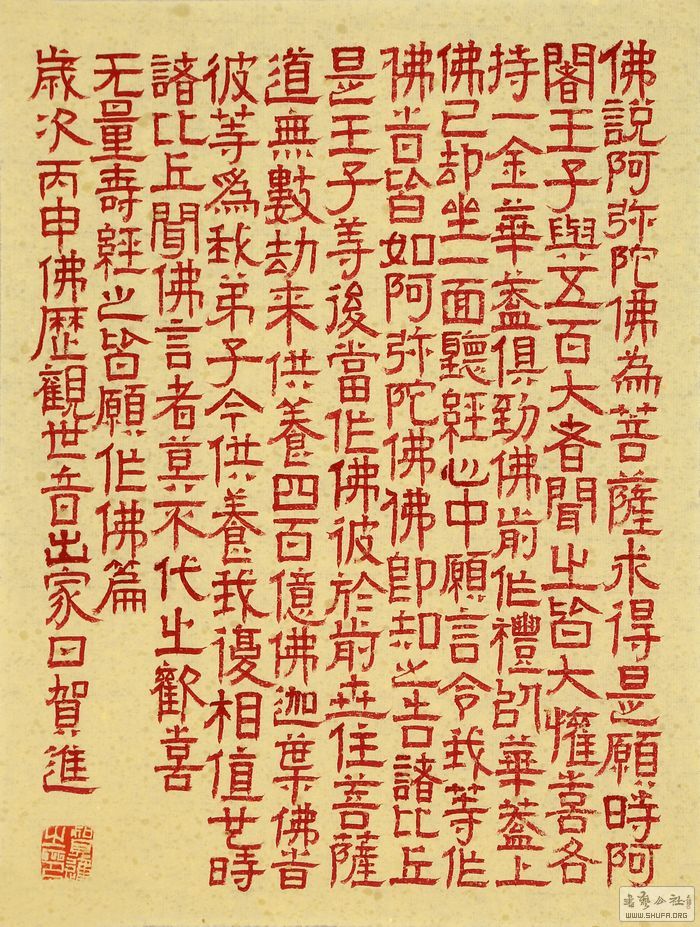 佛説阿弥陀佛為菩薩求得是願時阿
闍王子與五百大者聞之皆大懽喜各
持一金華蓋俱到佛前作禮以華蓋上
佛已却坐一面聽經心中願言令我等作
佛旹皆如阿弥陀佛佛即知之告諸比丘
是王子等後當作佛彼於前世住菩薩
道無數劫来供養四百億佛迦葉佛旹
彼等爲我弟子今供養我復相值也時
諸比丘聞佛言者莫不代之歡喜
无量壽經之皆願作佛篇
歲次丙申佛歷觀世音出家日賀進
書藝公社
WWW.SHUFA.ORG